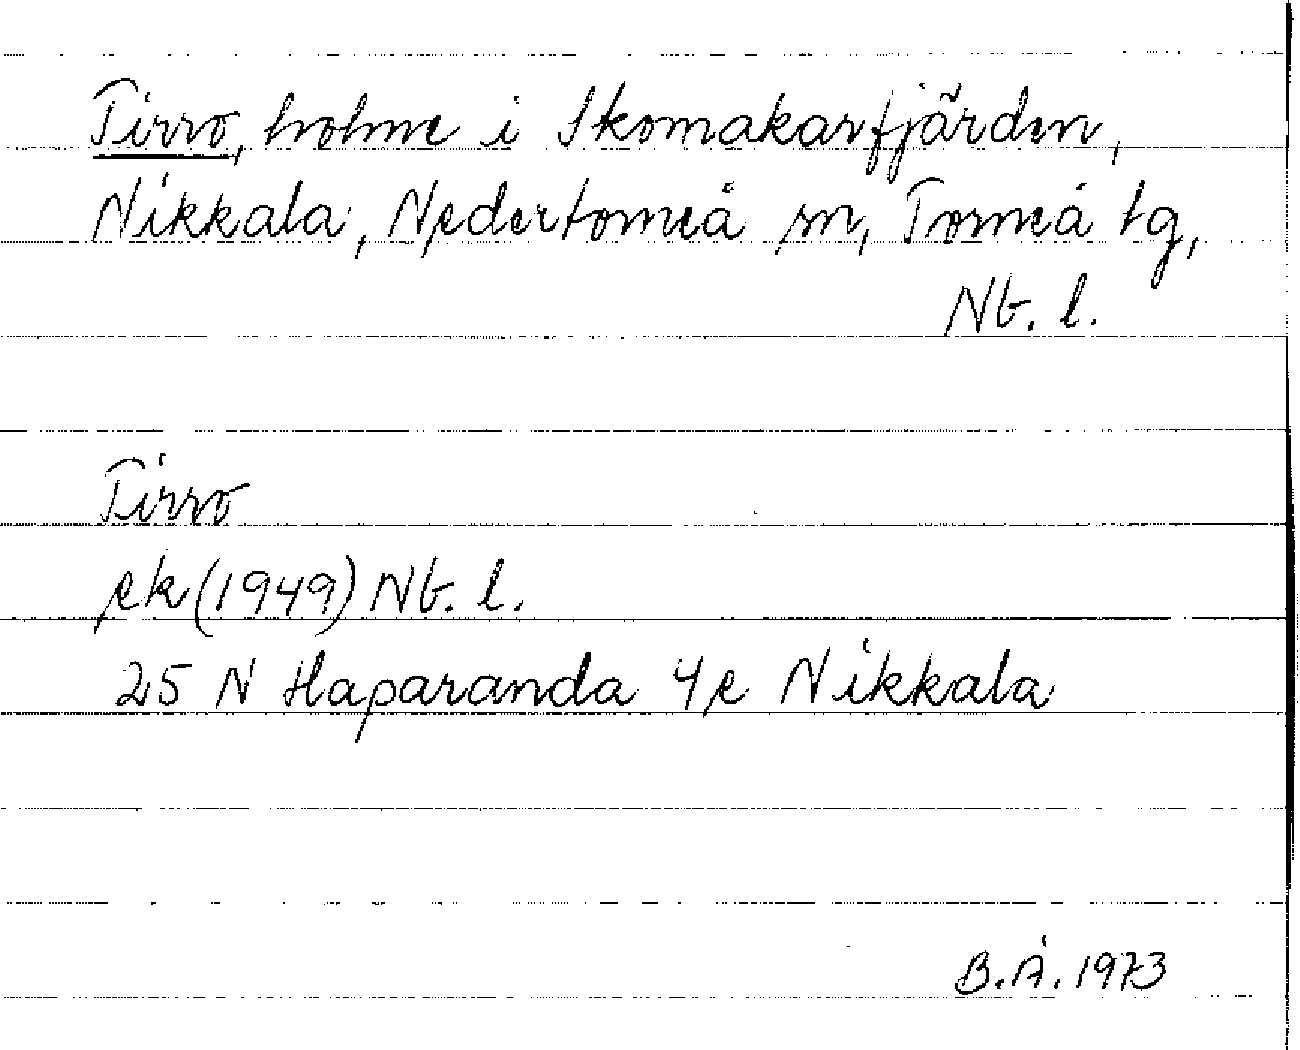 Tirro, holme i Skomakarfjärden,
Nikkala, Nedertorneå sn, Torneå tg,
Nb. l.
Tirro
ek (1949) Nb. l.
25 N Haparanda 4 e Nikkala
B.Å. 1973